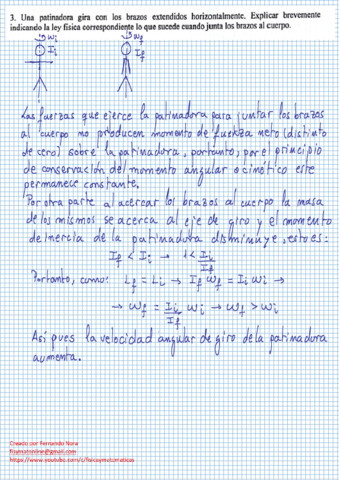 3. Una patinadora gira con los brazos extendidos horizontalmente. Explicar brevemente
indicando la ley física correspondiente lo que sucede cuando junta los brazos al cuerpo.
ωi ωf
Ii If
Las fuerzas que ejerce la patinadora para juntar los brazos
al cuerpo no producen momento de fuerza neto (distinto
de cero) sobre la patinadora, portanto, por el principio
de conservación del momento angular o cinético este
permanece constante.
Por otra parte al acercar los brazos al cuerpo la masa
de los mismos se acerca al eje de giro y el momento
de inercia de la patinadora disminuye, esto es:
If < Ii → 1 < Ii/If
Portanto, como: Lf = Li → If ωf = Ii ωi →
→ ωf = Ii/If ωi → ωf > ωi
Así pues la velocidad angular de giro de la patinadora
aumenta.
Creado por Fernando Nora